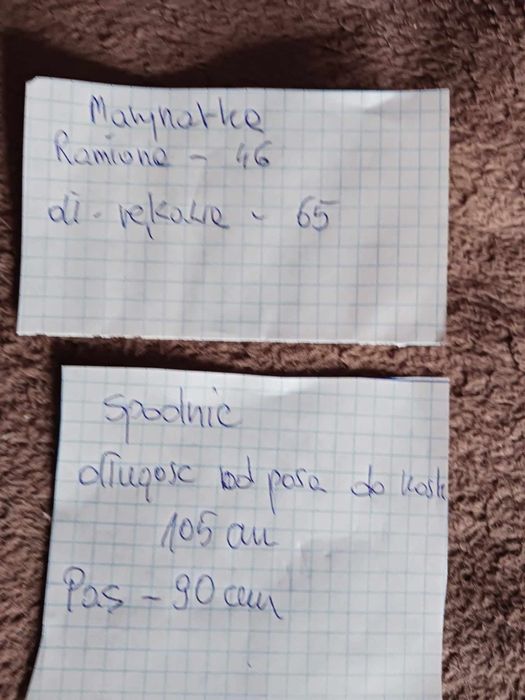 Marynarka
Ramiona - 46
dł. rękawa - 65
Spodnie
długość od pasa do kostk
105 cm
Pas - 90 cm